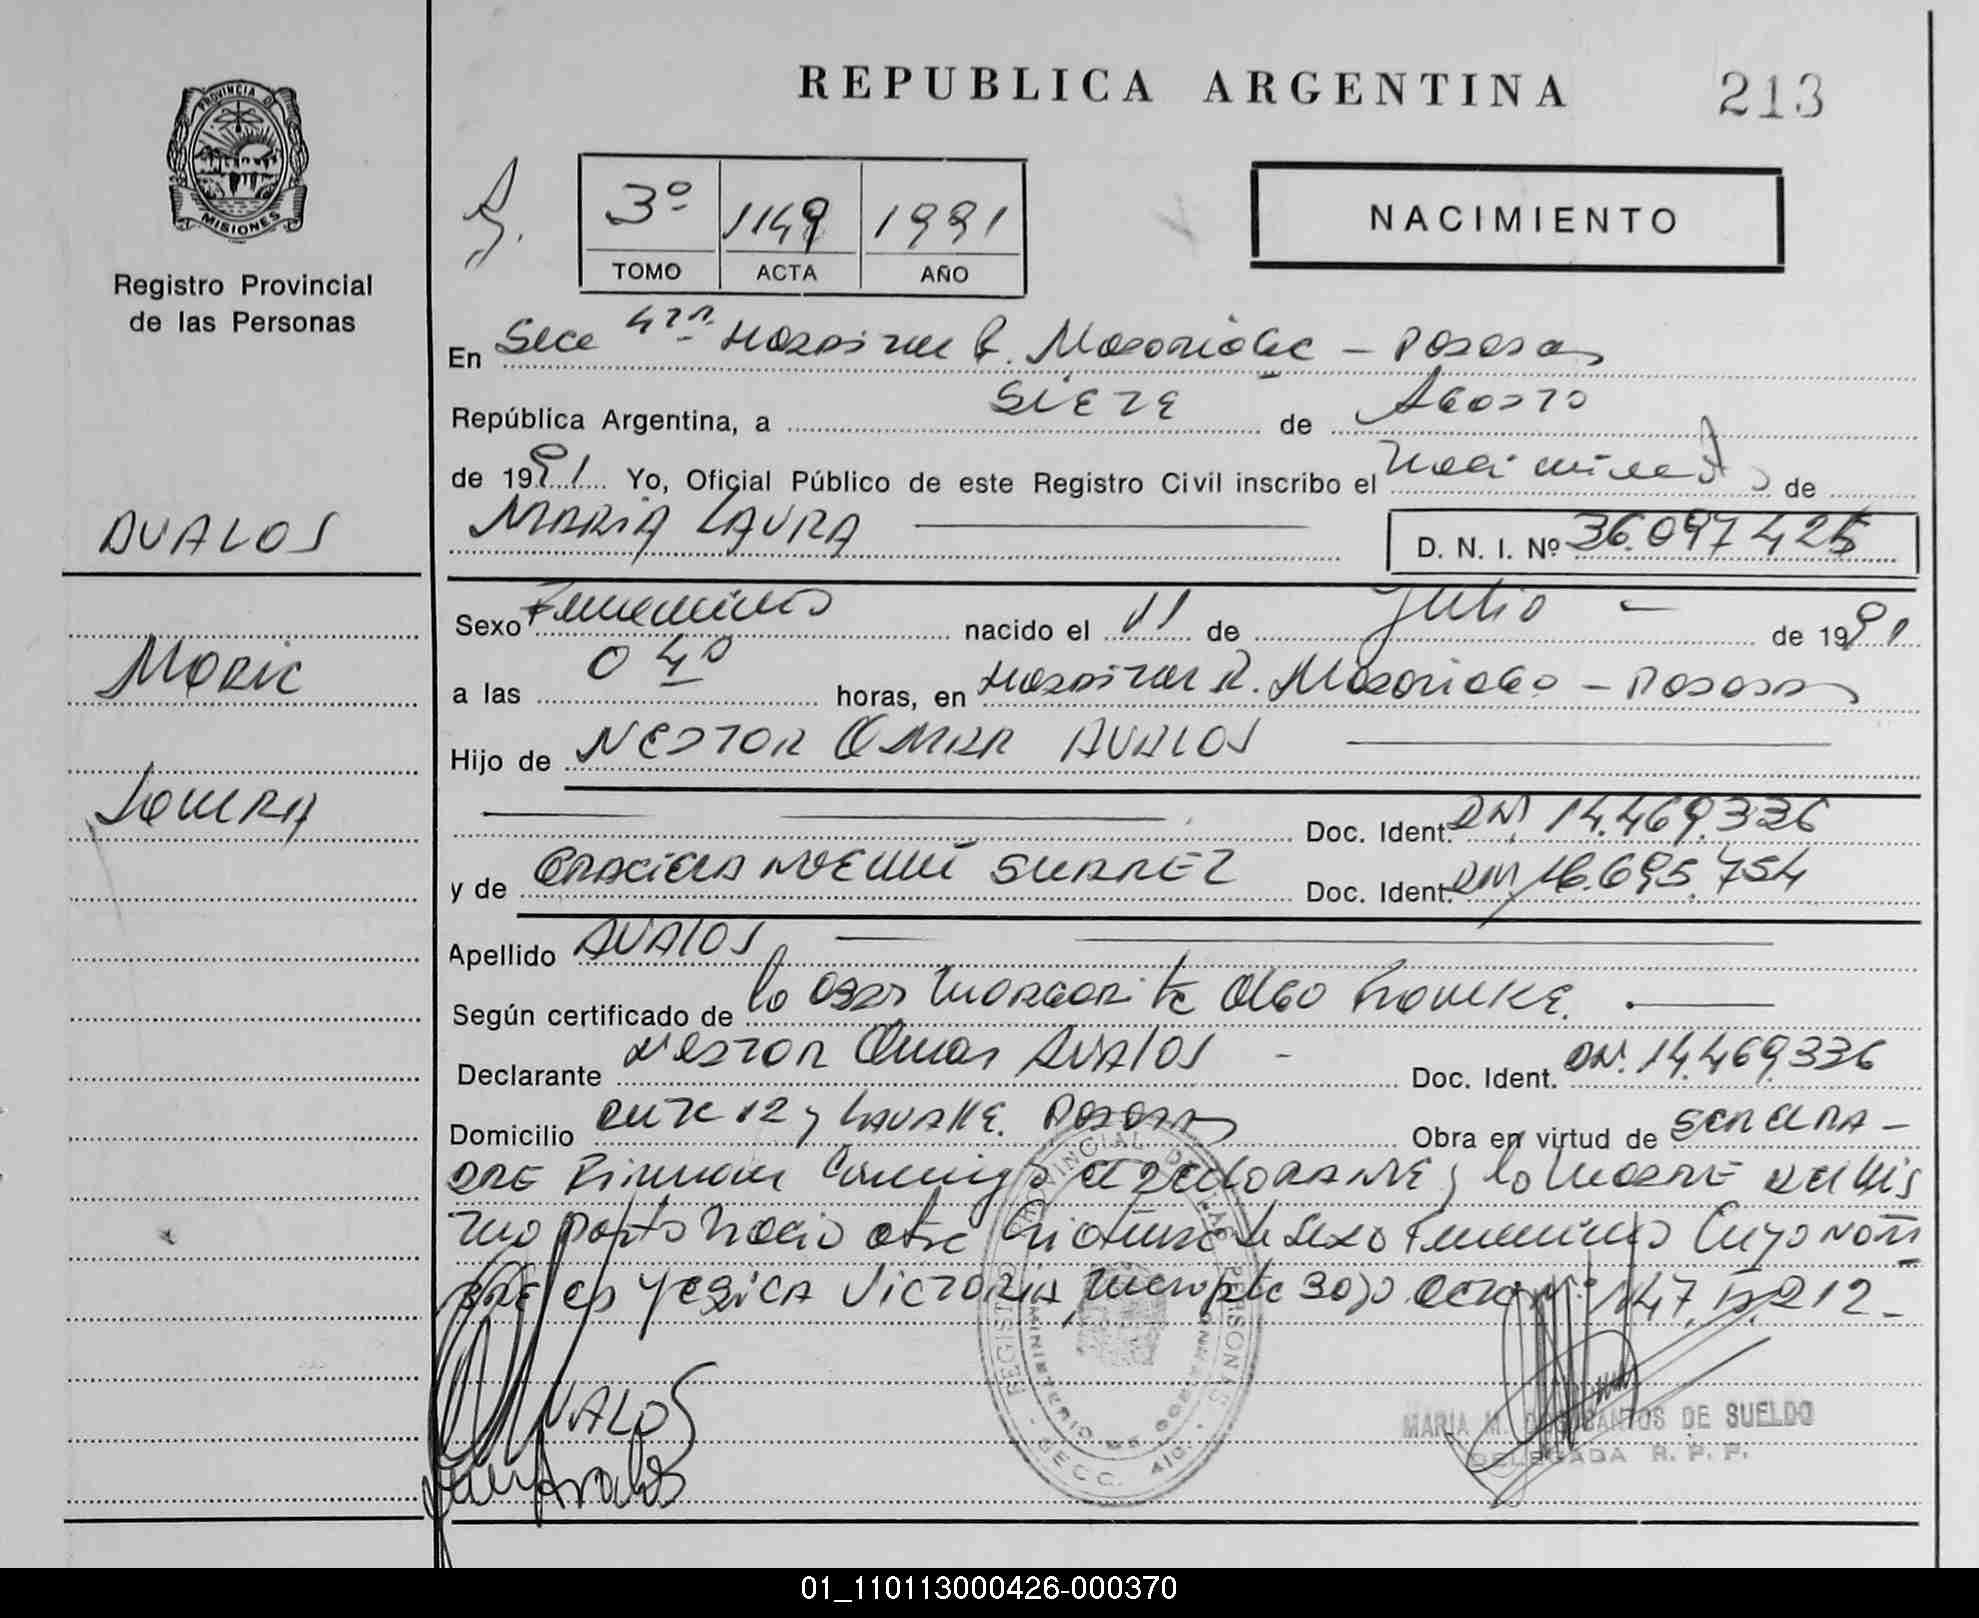 REPUBLICA ARGENTINA
213
PROVINCIA DE
MISIONES
Registro Provincial
de las Personas
3º 1149 1991
TOMO ACTA AÑO
NACIMIENTO
En Secc 4ta Hospital R. Madariaga - Posadas
República Argentina, a SIETE de Agosto
de 1991 Yo, Oficial Público de este Registro Civil inscribo el nacimiento de
AVALOS
MARIA LAURA
D. N. I. Nº 36.097.425
Sexo Femenino nacido el 11 de Julio - de 1991
MARIA
a las 04 horas, en Hospital R. Madariaga - Posadas
Hijo de NESTOR OMAR AVALOS
LAURA
Doc. Ident. DNI 14.469.336
y de GRACIELA NOEMI SUAREZ Doc. Ident. DNI 16.695.754
Apellido AVALOS
Según certificado de la Obst Margarita Olga
Declarante NESTOR Omar AVALOS - Doc. Ident. DNI. 14.469.336
Domicilio 12 y LAVALLE. POSADAS Obra en virtud de SER EL PA-
DRE Firman Conmigo el DECLARANTE y la MADRE del Mis
mo parto Nacio otra Criatura de Sexo Femenino Cuyo NOM
BRE es YESICA VICTORIA, inscripta bajo acta Nº 1147 Fº 212-
REGISTRO PROVINCIAL DE LAS PERSONAS
MINISTERIO DE GOBIERNO
SECC. 4ta.
AVALOS
MARIA M. DOS SANTOS DE SUELDO
DELEGADA R. P. P.
01_110113000426-000370